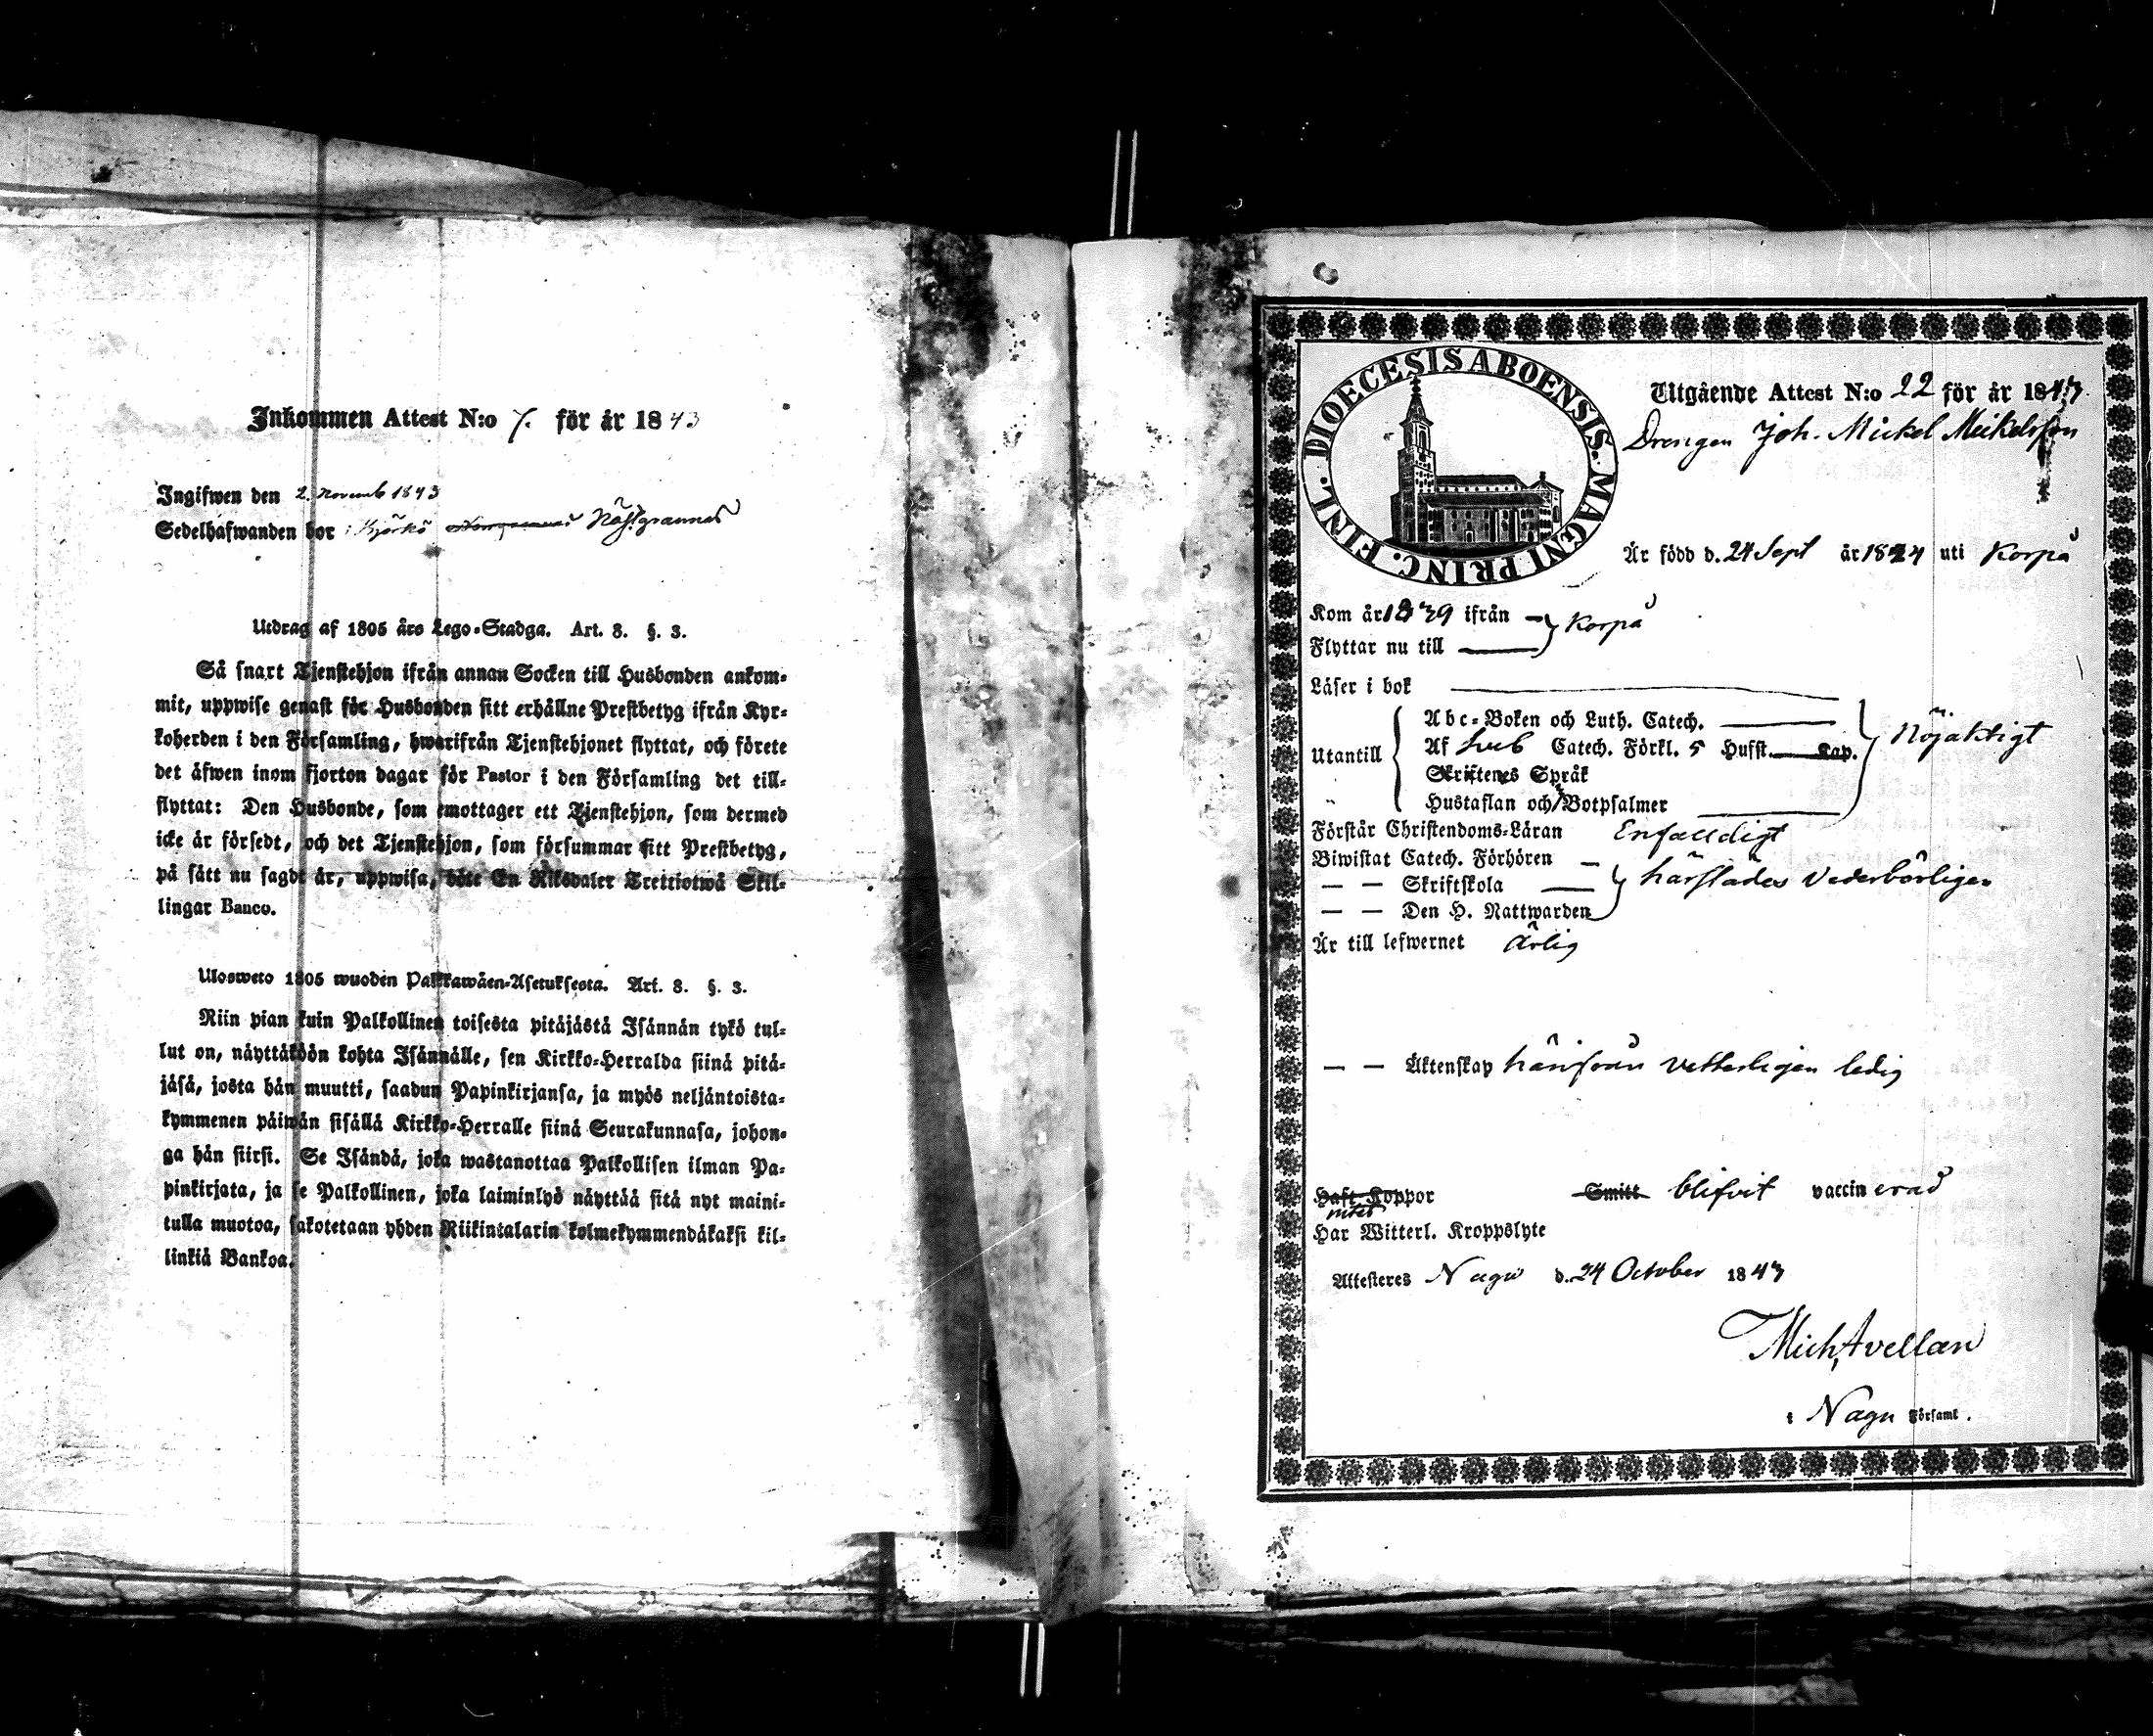 Inkommen Attest N:o 7. för år 1843
Ingifwen den 2. Novemb 1843
Sedelhafwanden bor i Björkö Näsgrannas
Utdrag af 1805 års Lego-Stadga. Art. 8. §. 3.
Så snart Tjenstehjon ifrån annan Socken till Husbonden ankom-
mit, uppwise genast för Husbonden sitt erhållne Prestbetyg ifrån Kyr-
koherden i den Församling, hwarifrån Tjenstehjonet flyttat, och förete
det äfwen inom fjorton dagar för Pastor i den Församling det till-
flyttat: Den Husbonde, som emottager ett Tjenstehjon, som dermed
icke är försedt, och det Tjenstehjon, som försummar sitt Prestbetyg,
på sätt nu sagdt är, uppwisa, böte En Riksdaler Trettiotwå Skil-
lingar Banco.
Ulosweto 1805 wuoden Palkkawäen-Asetuksesta. Art. 8. §. 3.
Niin pian kuin Palkollinen toisesta pitäjästä Isännän tykö tul-
lut on, näyttäköön kohta Isännälle, sen Kirkko-Herralda siinä pitä-
jäsä, josta hän muutti, saadun Papinkirjansa, ja myös neljäntoista-
kymmenen päiwän sisällä Kirkko-Herralle siinä Seurakunnasa, johon-
ga hän siirsi. Se Isändä, joka wastanottaa Palkollisen ilman Pa-
pinkirjata, ja se Palkollinen, joka laiminlyö näyttää sitä nyt maini-
tulla muotoa, sakotetaan yhden Riikintalarin kolmekymmendäkaksi kil-
linkiä Bankoa.
DIOECESIS ABOENSIS. MAGNI PRINC. FINL.
Utgående Attest N:o 22 för år 1843.
Drengen Joh. Mickel Mickelsson
Är född d. 24 Sept år 1824 uti Korpå
Kom år 1839 ifrån Korpå
Flyttar nu till
Läser i bok
Utantill
Abc-Boken och Luth. Catech.
Af Sveb Catech. Förkl. 5 Husst. Kap.
Nöjaktigt
Skriftenes Språk
Hustaflan och Botpsalmer
Förstår Christendoms-Läran Enfalldigt
Biwistat Catech. Förhören
— — Skriftskola härstädes vederbörligen
— — Den H. Nattwarden
Är till lefwernet ärlig
— — Äktenskap härifrån vetterligen ledig
Haft Koppor Smitt blifvit vaccinerad
intet
Har Witterl. Kroppslyte
Attesteres Nagu d. 24 October 1843
Mich Avellan
i Nagu Församl.